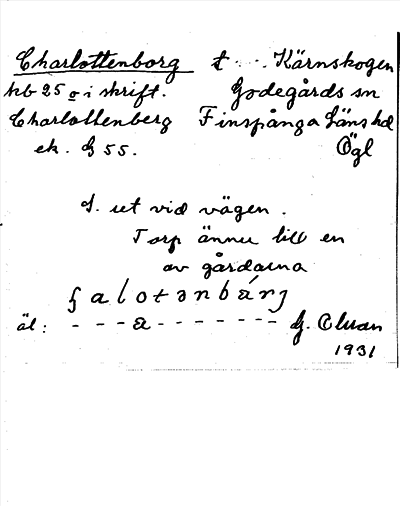 Charlottenborg t Kärnskogen
kb 25 o i skrift. Godegårds sn
Charlottenberg Finspånga läns hd
ek. G 55. Ögl
L. ut vid vägen.
Torp ännu till en
av gårdarna
äl: - - - a - - - - - - - G.
1931